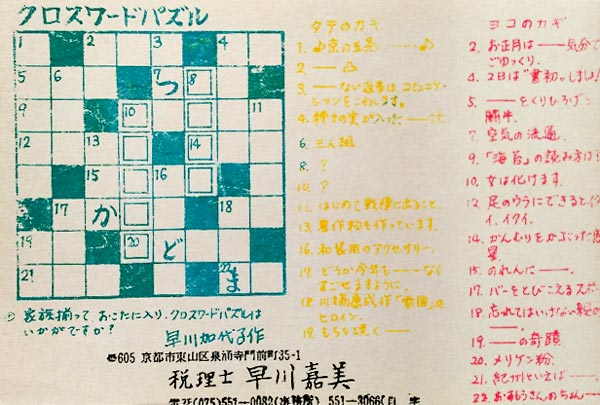 クロスワードパズル
1 2 3 4
5 6 7 つ 8
9 10 11
12 13 14
15 16
17 か 18
19 20 ど
21 22 ま
タテのカギ
2. ——
3. ——ない返事はコミュニケーションをこわします。
4. 種々の実が入った——汁
6. 三人組
8. ?
10. ?
11. はじめて戦陣に出ること。
13. 農作物を作っています。
16. 和装用のアクセサリー。
19. どうか今年も——なく
すごせますように。
18. 川端康成作「雪国」の
ヒロイン。
19. もちを焼く——
ヨコのカギ
2. お正月は——気分で
ごゆっくり。
4. 2日は“書初めしましょ
5. ——をくりひろげる
闘牛。
7. 空気の流通。
9. 「海苔」の読み方は?
10. 女は化けます。
12. 足のウラにできるとイタ
イ、イタイ。
14. かんむりをかぶった惑
星。
15. のれんに——。
17. バーをとびこえるスポー
18. 忘れてはいけない
——。
19. ——の奇蹟
20. メリケン粉。
21. 紀州といえば——。
22. おすもうさんのちゃん——
家族揃って、おこたに入り、クロスワードパズルは
いかがですか?
早川加代子作
〒605 京都市東山区泉涌寺門前町35-1
税理士 早川嘉美
電話(075)551-0082(事務所) 551-3066(自宅